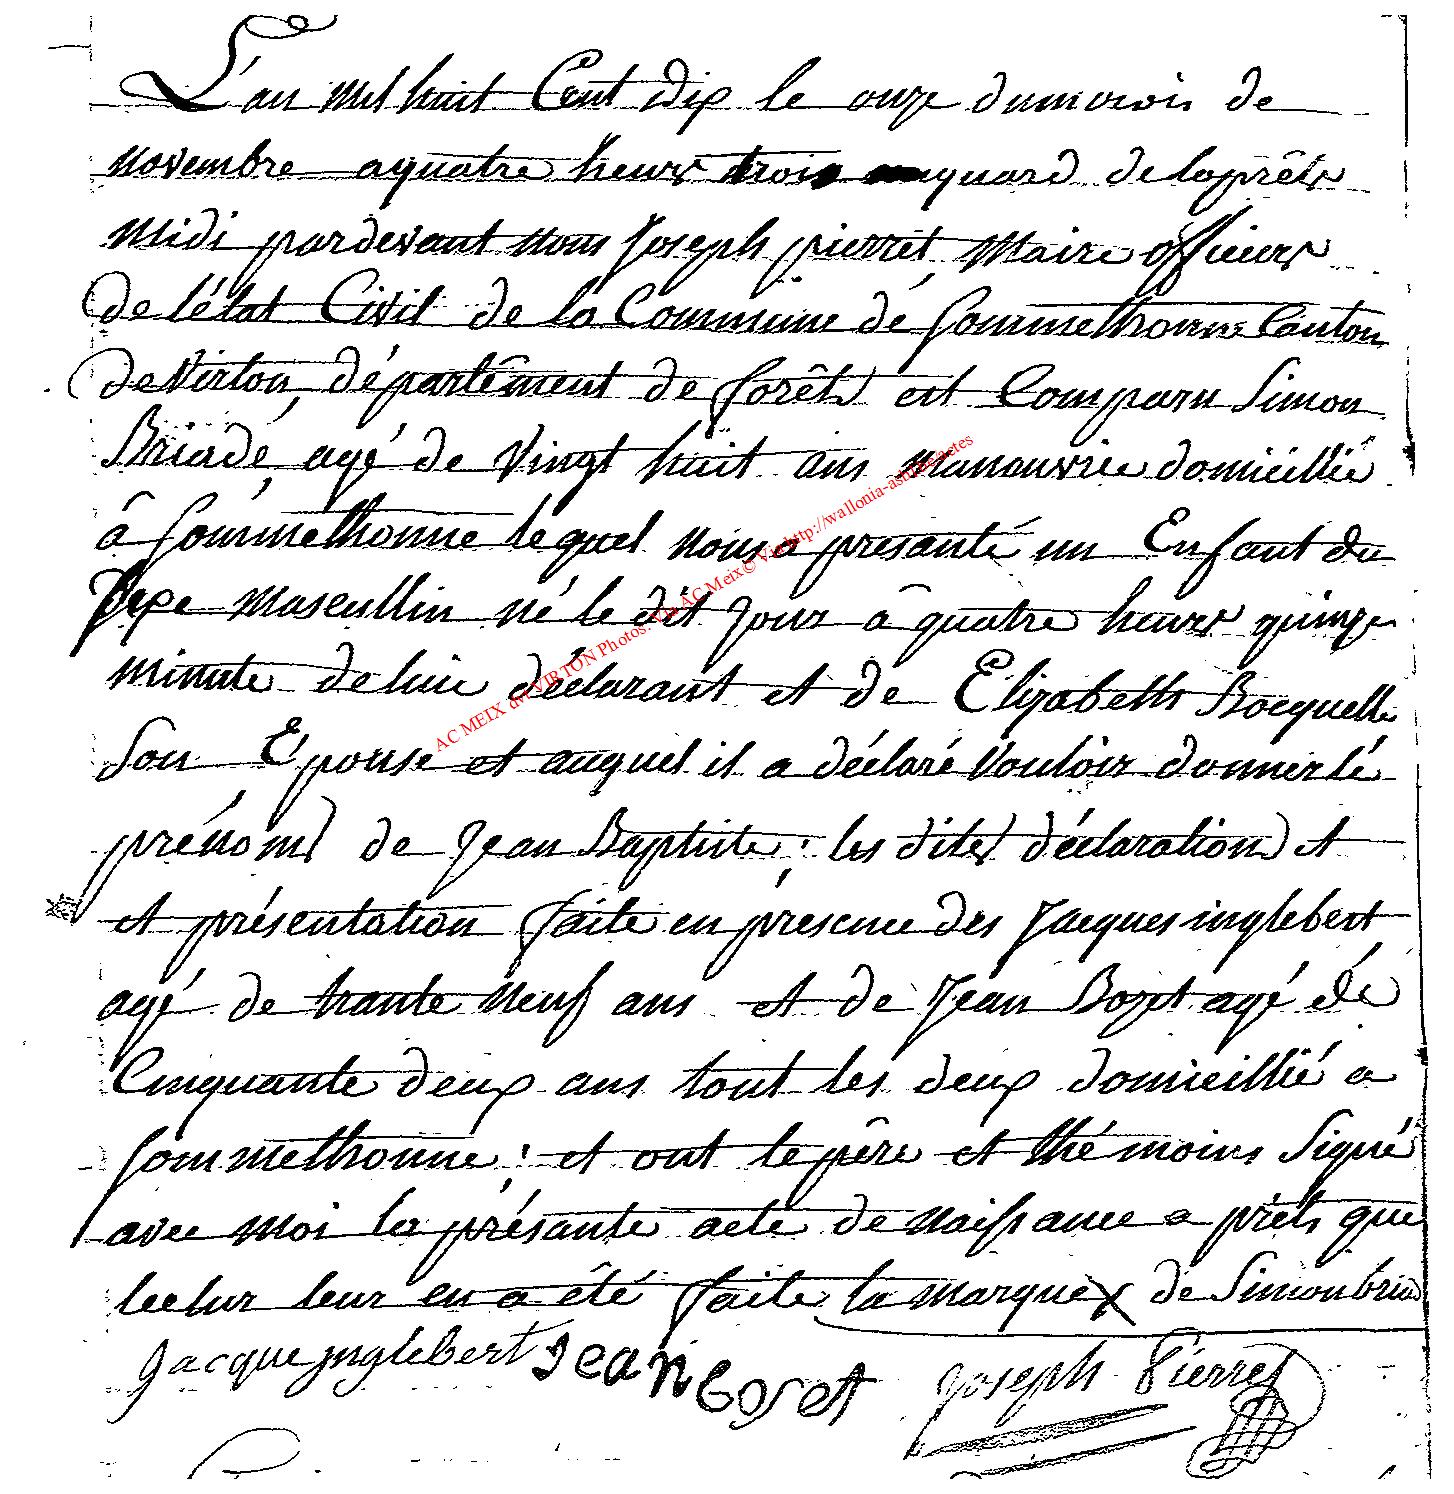 L'an mil huit Cent dix le onze du mois de
novembre a quatre heurs trois quard de laprêts
midi pardevant nous Joseph pierret Maire officiers
de l'état Civil de la Commune dé Sommethonne Canton
de Virton, départêment de forêts est Comparu Simon
Briadé, agé de Vingt huit ans manouvrie domicillié
â Sommethonne lequel nous a presanté un Enfant du
Sexe Mascullin né le dit jour â quatre heurs quinze
minute de luie déclarant et de Elizabeth Bocquelle
Son Epouse et auquel il a déclaré Vouloir donner lé
prénoms de Jean Baptiste; les dites déclarations et
et présentation faite en présence des Jacques inglebert
agé de trante neuf ans et de Jean Bozet agé dé
Cinquante deux ans tout les deux domicillié a
Sommethonne; et ont le père et thémoins Signé
avec moi la présante acte de naissance a prèts que
lectur leur en a été faite la marque X de Simon bria
Jacque jnglebert Jean bozet Joseph Pierret
AC MEIX dvt VIRTON Photos: VH AC Meix© Via http://wallonia-asbl.be/actes